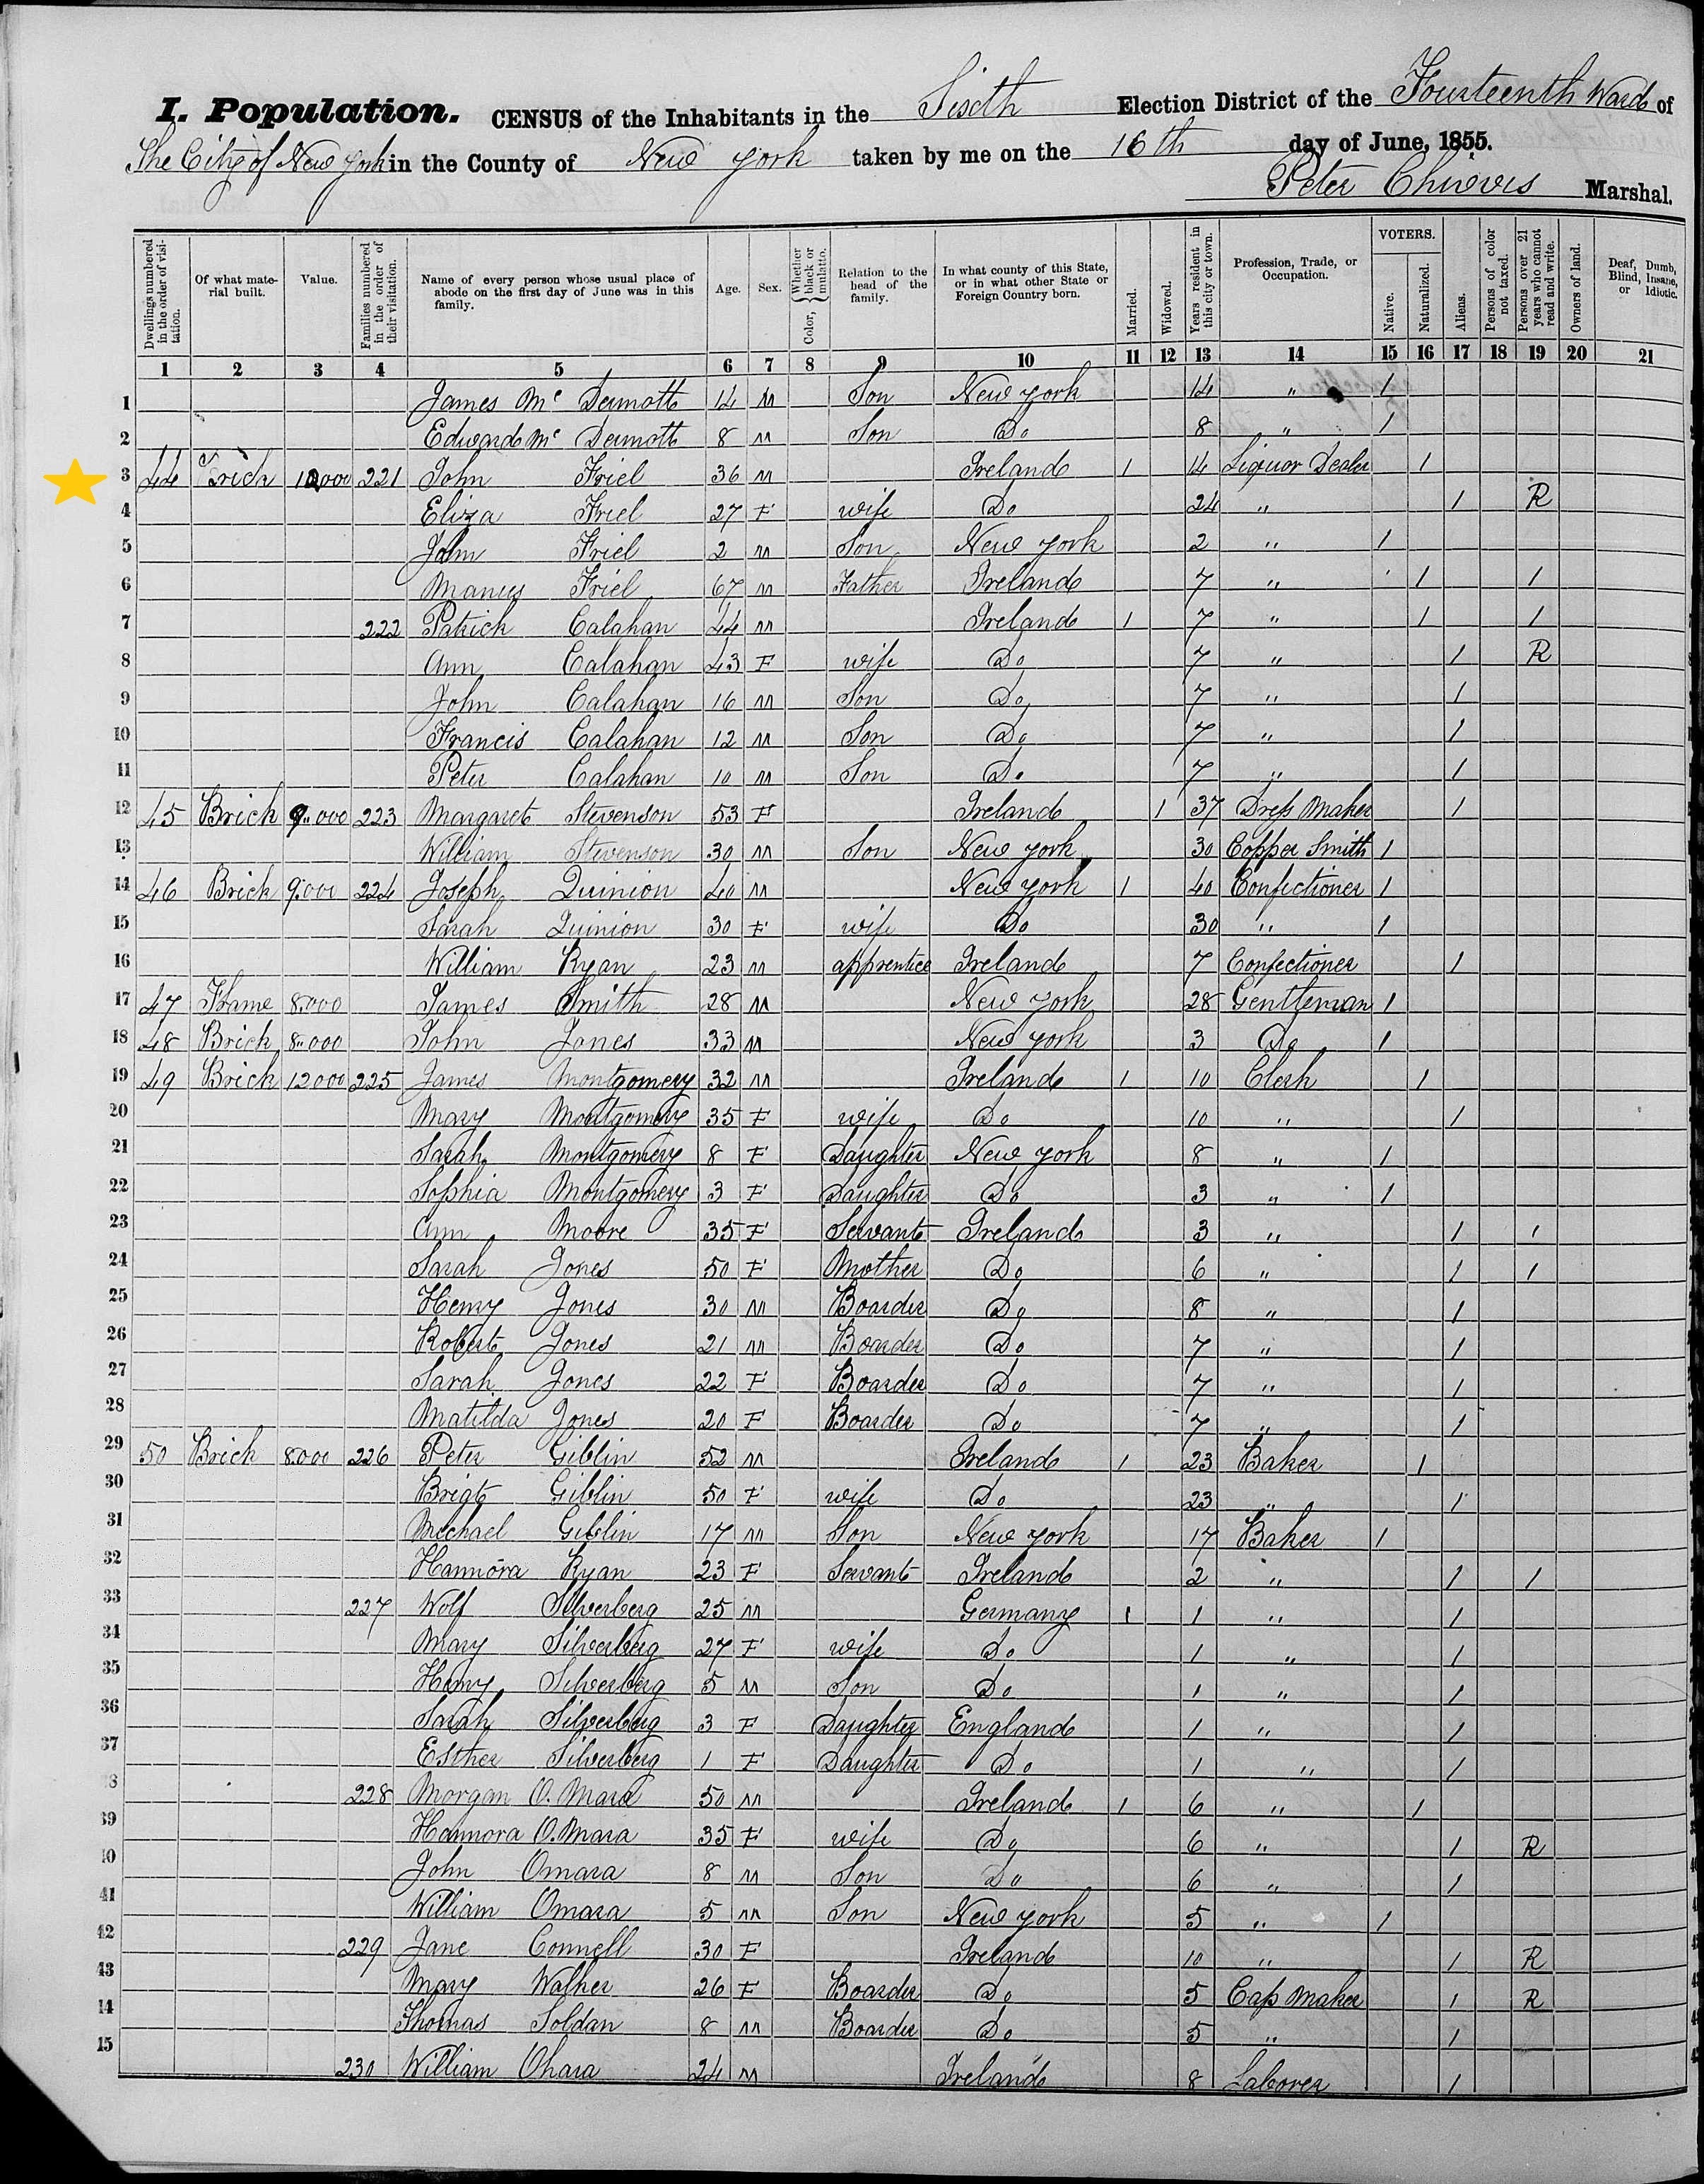 I. Population. CENSUS of the Inhabitants in the Sixth Election District of the Fourteenth Ward of
The City of New York in the County of New York taken by me on the 16th day of June, 1855.
Peter Marshal.
Dwellings numbered in the order of visitation. Of what material built. Value. Families numbered in the order of their visitation. Name of every person whose usual place of abode on the first day of June was in this family. Age. Sex. Color, Whether black or mulatto. Relation to the head of the family. In what county of this State, or in what other State or Foreign Country born. Married. Widowed. Years resident in this city or town. Profession, Trade, or Occupation. VOTERS. Native. Naturalized. Aliens. Persons of color not taxed. Persons over 21 years who cannot read and write. Owners of land. Deaf, Dumb, Blind, Insane, or Idiotic.
1 2 3 4 5 6 7 8 9 10 11 12 13 14 15 16 17 18 19 20 21
1 James Mc Dermott 14 M Son New York 14 " 1
2 Edward Mc Dermott 8 M Son Do 8 " 1
3 44 Brick 221 John Friel 36 M Ireland 1 14 Liquor Dealer 1
4 Eliza Friel 27 F wife Do 24 " 1 R
5 John Friel 2 M Son New York 2 " 1
6 Manus Friel 67 M Father Ireland 7 " 1 1
7 222 Patrick Calahan 44 M Ireland 1 7 " 1 1
8 Ann Calahan 43 F wife Do 7 " 1 R
9 John Calahan 16 M Son Do 7 " 1
10 Francis Calahan 12 M Son Do 7 " 1
11 Peter Calahan 10 M Son Do 7 " 1
12 45 Brick 9000 223 Margaret Stevenson 53 F Ireland 1 37 Dress Maker 1
13 William Stevenson 30 M Son New York 30 Copper Smith 1
14 46 Brick 9000 224 Joseph Quinion 40 M New York 1 40 Confectioner 1
15 Sarah Quinion 30 F wife Do 30 " 1
16 William Ryan 23 M apprentice Ireland 7 Confectioner 1
17 47 Frame 8000 James Smith 28 M New York 28 Gentleman 1
18 48 Brick 8000 John Jones 33 M New York 3 Do 1
19 49 Brick 12000 225 James Montgomery 32 M Ireland 1 10 Clerk 1
20 Mary Montgomery 35 F wife Do 10 " 1
21 Sarah Montgomery 8 F Daughter New York 8 " 1
22 Sophia Montgomery 3 F Daughter Do 3 " 1
23 Ann Moore 35 F Servant Ireland 3 " 1 1
24 Sarah Jones 50 F Mother Do 6 " 1 1
25 Henry Jones 30 M Boarder Do 8 " 1
26 Robert Jones 21 M Boarder Do 7 " 1
27 Sarah Jones 22 F Boarder Do 7 " 1
28 Matilda Jones 20 F Boarder Do 7 " 1
29 50 Brick 8000 226 Peter Giblin 52 M Ireland 1 23 Baker 1
30 Brigt Giblin 50 F wife Do 23 " 1
31 Michael Giblin 17 M Son New York 17 Baker 1
32 Hannora Ryan 23 F Servant Ireland 2 " 1 1
33 227 Wolf Silverberg 25 M Germany 1 1 " 1
34 Mary Silverberg 27 F wife Do 1 " 1
35 Henry Silverberg 5 M Son Do 1 " 1
36 Sarah Silverberg 3 F Daughter England 1 " 1
37 Esther Silverberg 1 F Daughter Do 1 " 1
38 228 Morgan O. Mara 50 M Ireland 1 6 " 1
39 Hannora O. Mara 35 F wife Do 6 " 1 R
40 John Omara 8 M Son Do 6 " 1
41 William Omara 5 M Son New York 5 " 1
42 229 Jane Connell 30 F Ireland 10 " 1 R
43 Mary Walker 26 F Boarder Do 5 Cap Maker 1 R
44 Thomas Soldan 8 M Boarder Do 5 " 1
45 230 William Ohara 24 M Ireland 8 Laborer 1